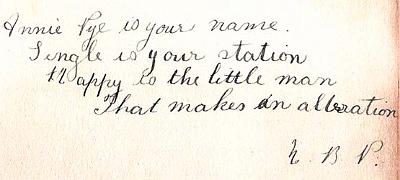 Annie Pye is your name.
Single is your station
Happy is the little man
That makes an alteration
N. B. P.